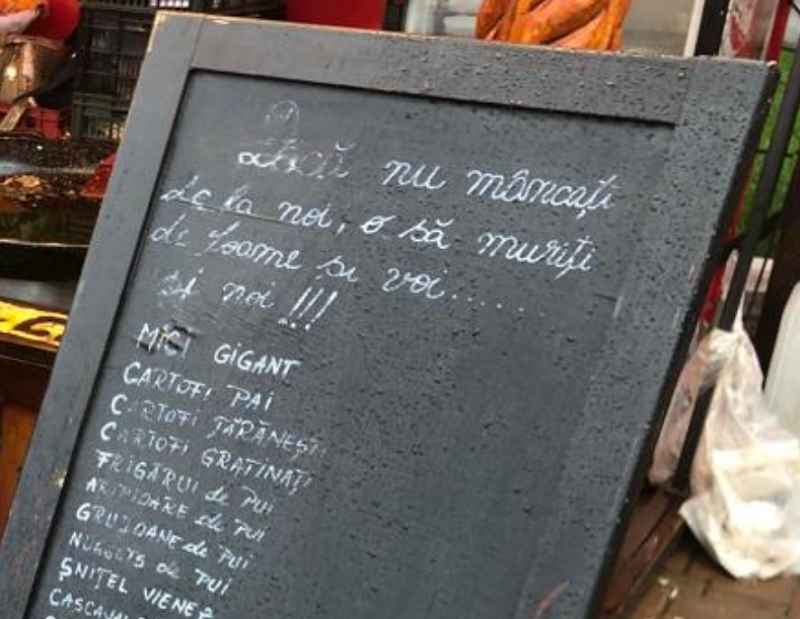 Dacă nu mâncați
de la noi, o să muriți
de foame și voi......
și noi !!!
MICI GIGANT
CARTOFI PAI
CARTOFI ȚĂRĂNEȘTI
CARTOFI GRATINAȚI
FRIGĂRUI de PUI
ARIPIOARE de PUI
GRUIOANE de PUI
NUGGETS de PUI
ȘNIȚEL VIENEZ